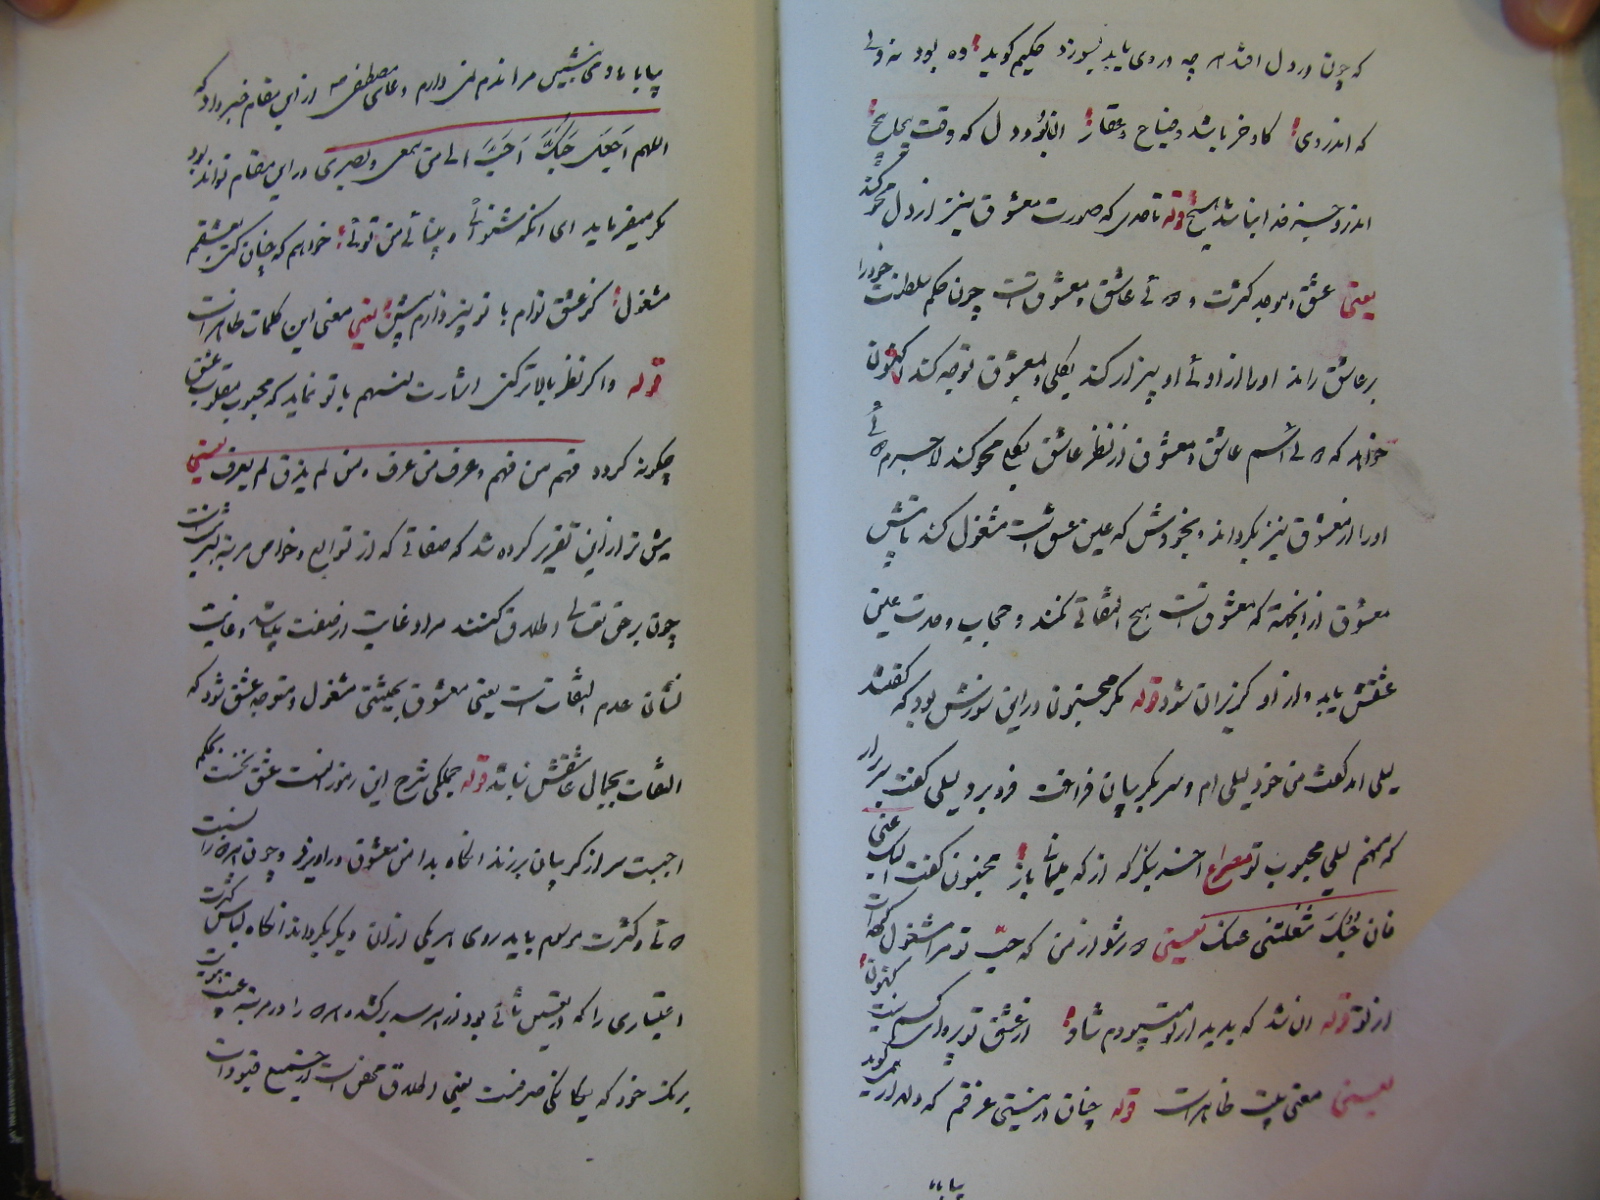 که چون در دل افتد هر چه در وی یابد بسوزد حکیم گوید ده بود نه دلی
که اندر وی گاو و خر باشد و ضیاع و عقار
اندرو جز خدا نباشد هیچ قوله تا حدی که صورت معشوق نیز از دل محو کند
یعنی عشق موجد کثرت و دوئی عاشق و معشوق است چون حکم سلطنت خود را
بر عاشق راند او را از اوئی او بیزار کند بکلی معشوق توجه کند اکنون
خواهد که دوئی اسم عاشق و معشوق از نظر عاشق بکلی محو کند لاجرم
او را از معشوق نیز بگرداند و بخودش که عین عشق است مشغول کند تا بیش
معشوق از آنجهة که معشوق است هیچ التفاتی نکند و حجاب وحدت عین
عشقش یابد و از او گریزان شود قوله مگر مجنون در این سوزش بود که گفتند
لیلی آمد گفت من خود لیلی ام و سر بگریبان فراغت فرو برد لیلی گفت سر بردار
که منم لیلی محبوب تو مصراع آخر بنگر که از که میمانی باز مجنون گفت الیک عنی
فان حبک شغلنی عنک یعنی دور شو از من که حب تو مرا مشغول کرده است
از تو قوله آن شد که بدیدار تو میبودم شاد از عشق تو پروای توام نیست کنون
یعنی معنی بیت ظاهر است قوله چنان در نیستی غرقم که دلدار می گوید
بیا با ما
بیا با ما دمی بنشین سر اندر هم نمی دارم و دعای مصطفی صم از این مقام خبر داد که
اللهم اجعل حبک احب الی من سمعی و بصری در این مقام تواند بود
مگر میفرماید ای آنکه شنوائی و بینائی من توئی خواهم که چنان کنی بعشقم
مشغول کز عشق تو ام با تو نپردازم بیش یعنی معنی این کلمات ظاهر است
قوله و اگر نظر بالاتر کنی اشارت لنسهم با تو نماید که محبوب مطلوب عشق
چگونه گردد فهم من فهم و عرف من عرف و من لم یذق لم یعرف یعنی
پیش تر از این تقریر کرده شد که صفاتی که از توابع و خواص مرتبه بشریت است
چون بر حق تعالی اطلاق کنند مراد غایت از صفت باشد و غایت
نسیان عدم التفات است یعنی معشوق بحیثیتی مشغول و متوجه عشق شود که
التفات بجمال عاشقش نباشد قوله جملگی شرح این رموز آنست عشق نخست بحکم
احببت سر از گریبان برزند آنگاه بدامن معشوق در آویزد و چون او را نسبت
دوئی و کثرت مرسوم یابد روی هر یکی از آن دیگر بگرداند آنگاه لباس کثرت
اعتباری را که در تعین ثانی بود از هر سه برکشد و هر دو را در مرتبه غیب هویت
برنگ خود که یگانگی صرفست یعنی اطلاق محض است از جمیع قیودات